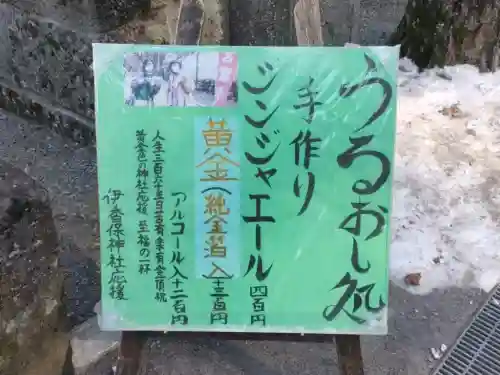 うるおし処
手作り
ジンジャエール 四百円
黄金(純金箔)入 十三百円
アルコール入 十二百円
人生三百六十五日苦有楽有全頂祝
黄金色の神社応援 至福の一杯
伊香保神社応援